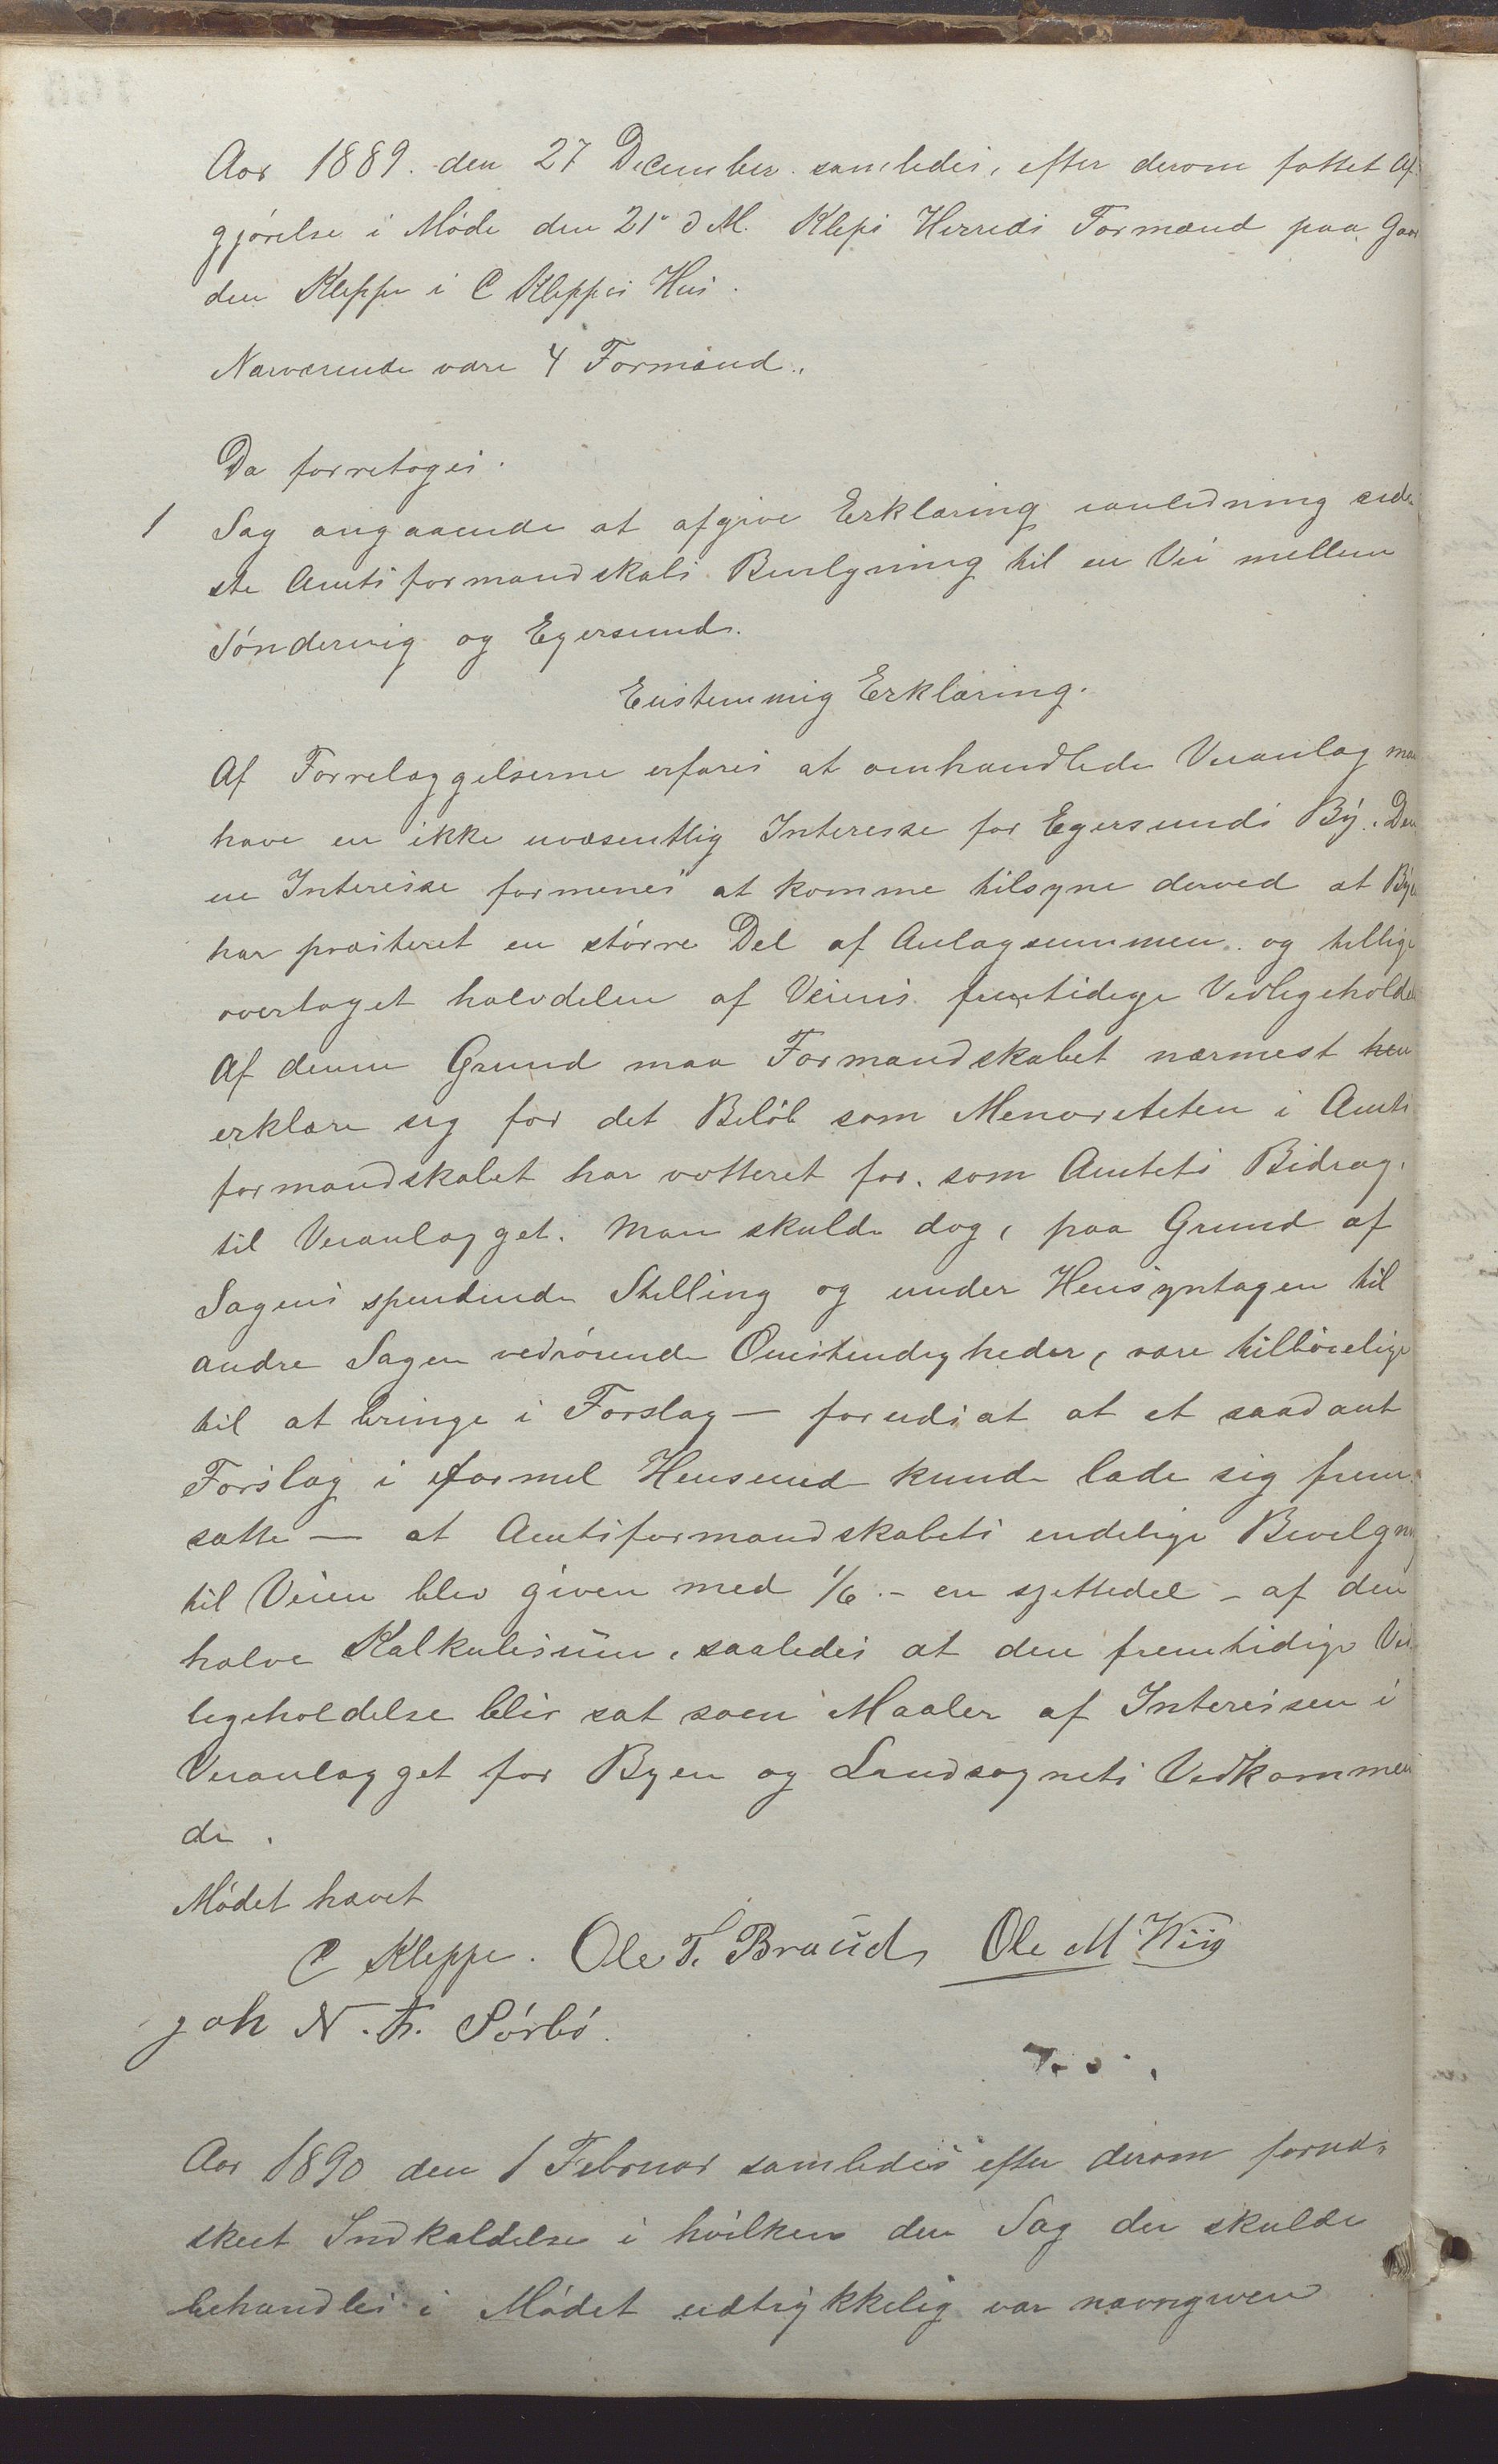 Aar 1889. den 27 December samledes, efter derom fattet Af-
gjørelse i Møde den 21de d M. Kleps Herreds Formænd paa Gaar
den Kleppe i C Kleppes Hus.
Nærværende vare 4 Formænd.
Da forretoges.
1 Sag angaaende at afgive Erklæring ianledning sid-
ste Amtsformandskabs Bevilgning til en Vei mellem
Søndervig og Egersund.
Enstemmig Erklæring.
Af Forrelæggelserne erfares at omhandlede Veianlæg maa
have en ikke uvæsentlig Interesse for Egersunds By. Den
ne Interesse formenes at komme tilsyne derved at Byen
har præsteret en større Del af Anlægsummen og tillige
overtaget halvdelen af Veiens fremtidige Vedligeholdel
Af denne Grund maa Formandskabet nærmest hen
erklære sig for det Beløb som Menoriteten i Amts
formandskabet har votteret for, som Amtets Bidrag,
til Veianlægget. Man skulde dog, paa Grund af
Sagens spendende Stilling og under Hensyntagen til
andre Sagen vedrørende Omstendigheder, være tilbøielige
til at bringe i Forslag — forudsat at et saadant
Forslag i formel Henseende kunde lade sig frem-
sætte — at Amtsformandskabets endelige Bevilgning
til Veien blev given med 1/6 - en sjettedel - af den
halve Kalkulesum, saaledes at den fremtidige Ved-
ligeholdelse blir sat som Maaler af Interessen i
Veianlægget for Byen og Landsognets Vedkommen
de.
Mødet hævet
C Kleppe. Ole T. Braud Ole M Wiig
Joh N. Fr. Sørbø.
Aar 1890 den 1 Februar samledes efter derom forud-
skeet Indkaldelse i hvilken den Sag der skulde
behandles i Mødet udtrykkelig var navngiven